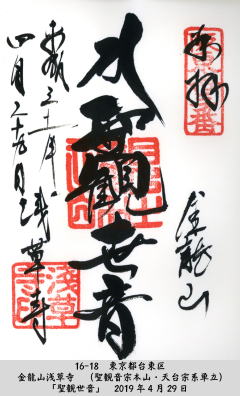 奉拝
金龍山
聖観世音
平成三十一年
四月二十九日 浅草寺
浅草寺
16-18 東京都台東区
金龍山浅草寺 (聖観音宗本山・天台宗系単立)
「聖観世音」 2019年4月29日